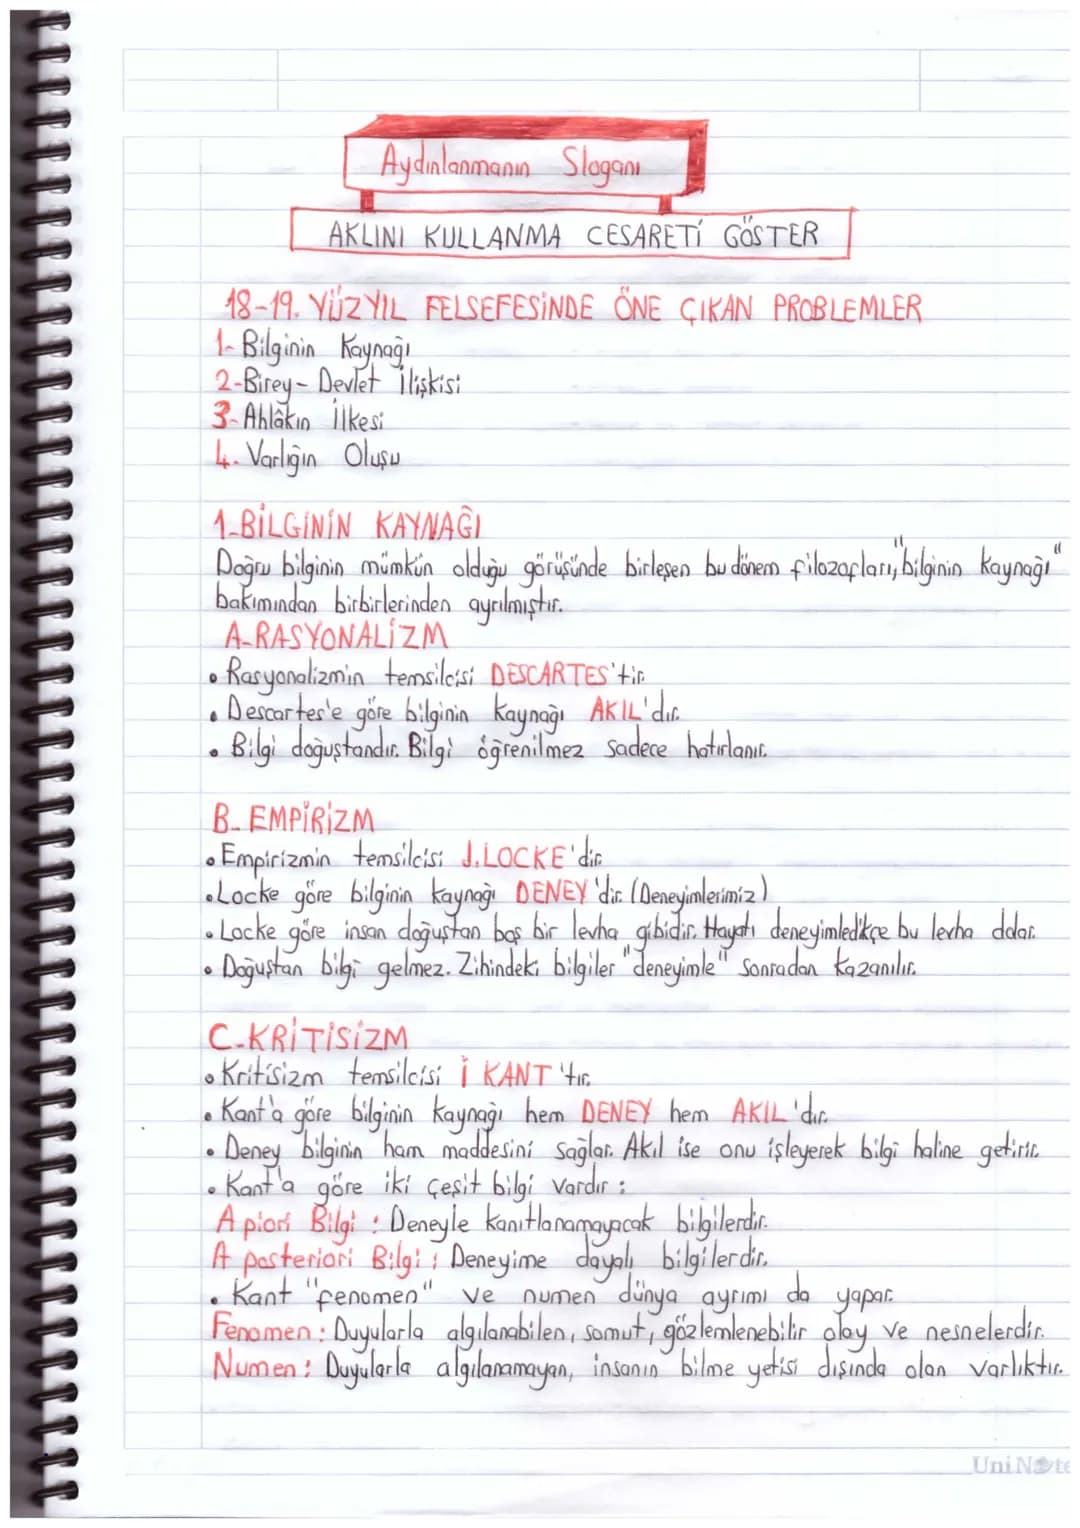 Aydınlanmanın Sloganı
AKLINI KULLANMA CESARETİ GÖSTER
18-19. YÜZYIL FELSEFESİNDE ÖNE ÇIKAN PROBLEMLER
1- Bilginin Kaynağı
2-Birey- Devlet İlişkisi
3-Ahlâkın İlkesi
4. Varlığın Oluşu
1-BİLGİNİN KAYNAĞI
Doğru bilginin mümkün olduğu görüşünde birleşen bu dönem filozofları, "bilginin kaynağı"
bakımından birbirlerinden ayrılmıştır.
A-RASYONALİZM
• Rasyonalizmin temsilcisi DESCARTES'tir.
• Descartes'e göre bilginin kaynağı AKIL'dır.
• Bilgi doğuştandır. Bilgi öğrenilmez sadece hatırlanır.
B- EMPİRİZM
• Empirizmin temsilcisi J.LOCKE'dir.
• Locke göre bilginin kaynağı DENEY'dir. (Deneyimlerimiz)
• Locke göre insan doğuştan boş bir levha gibidir. Hayatı deneyimledikçe bu levha dolar.
• Doğuştan bilgi gelmez. Zihindeki bilgiler "deneyimle" sonradan kazanılır.
C-KRİTİSİZM
• Kritisizm temsilcisi İ KANT'tır.
• Kant'a göre bilginin kaynağı hem DENEY hem AKIL'dır.
• Deney bilginin ham maddesini sağlar. Akıl ise onu işleyerek bilgi haline getirir.
• Kant'a göre iki çeşit bilgi vardır :
A piori Bilgi : Deneyle kanıtlanamayacak bilgilerdir.
A posteriori Bilgi : Deneyime dayalı bilgilerdir.
• Kant "fenomen" ve numen dünya ayrımı da yapar.
Fenomen : Duyularla algılanabilen, somut, gözlemlenebilir olay ve nesnelerdir.
Numen : Duyularla algılanamayan, insanın bilme yetisi dışında olan varlıktır.
UniNote